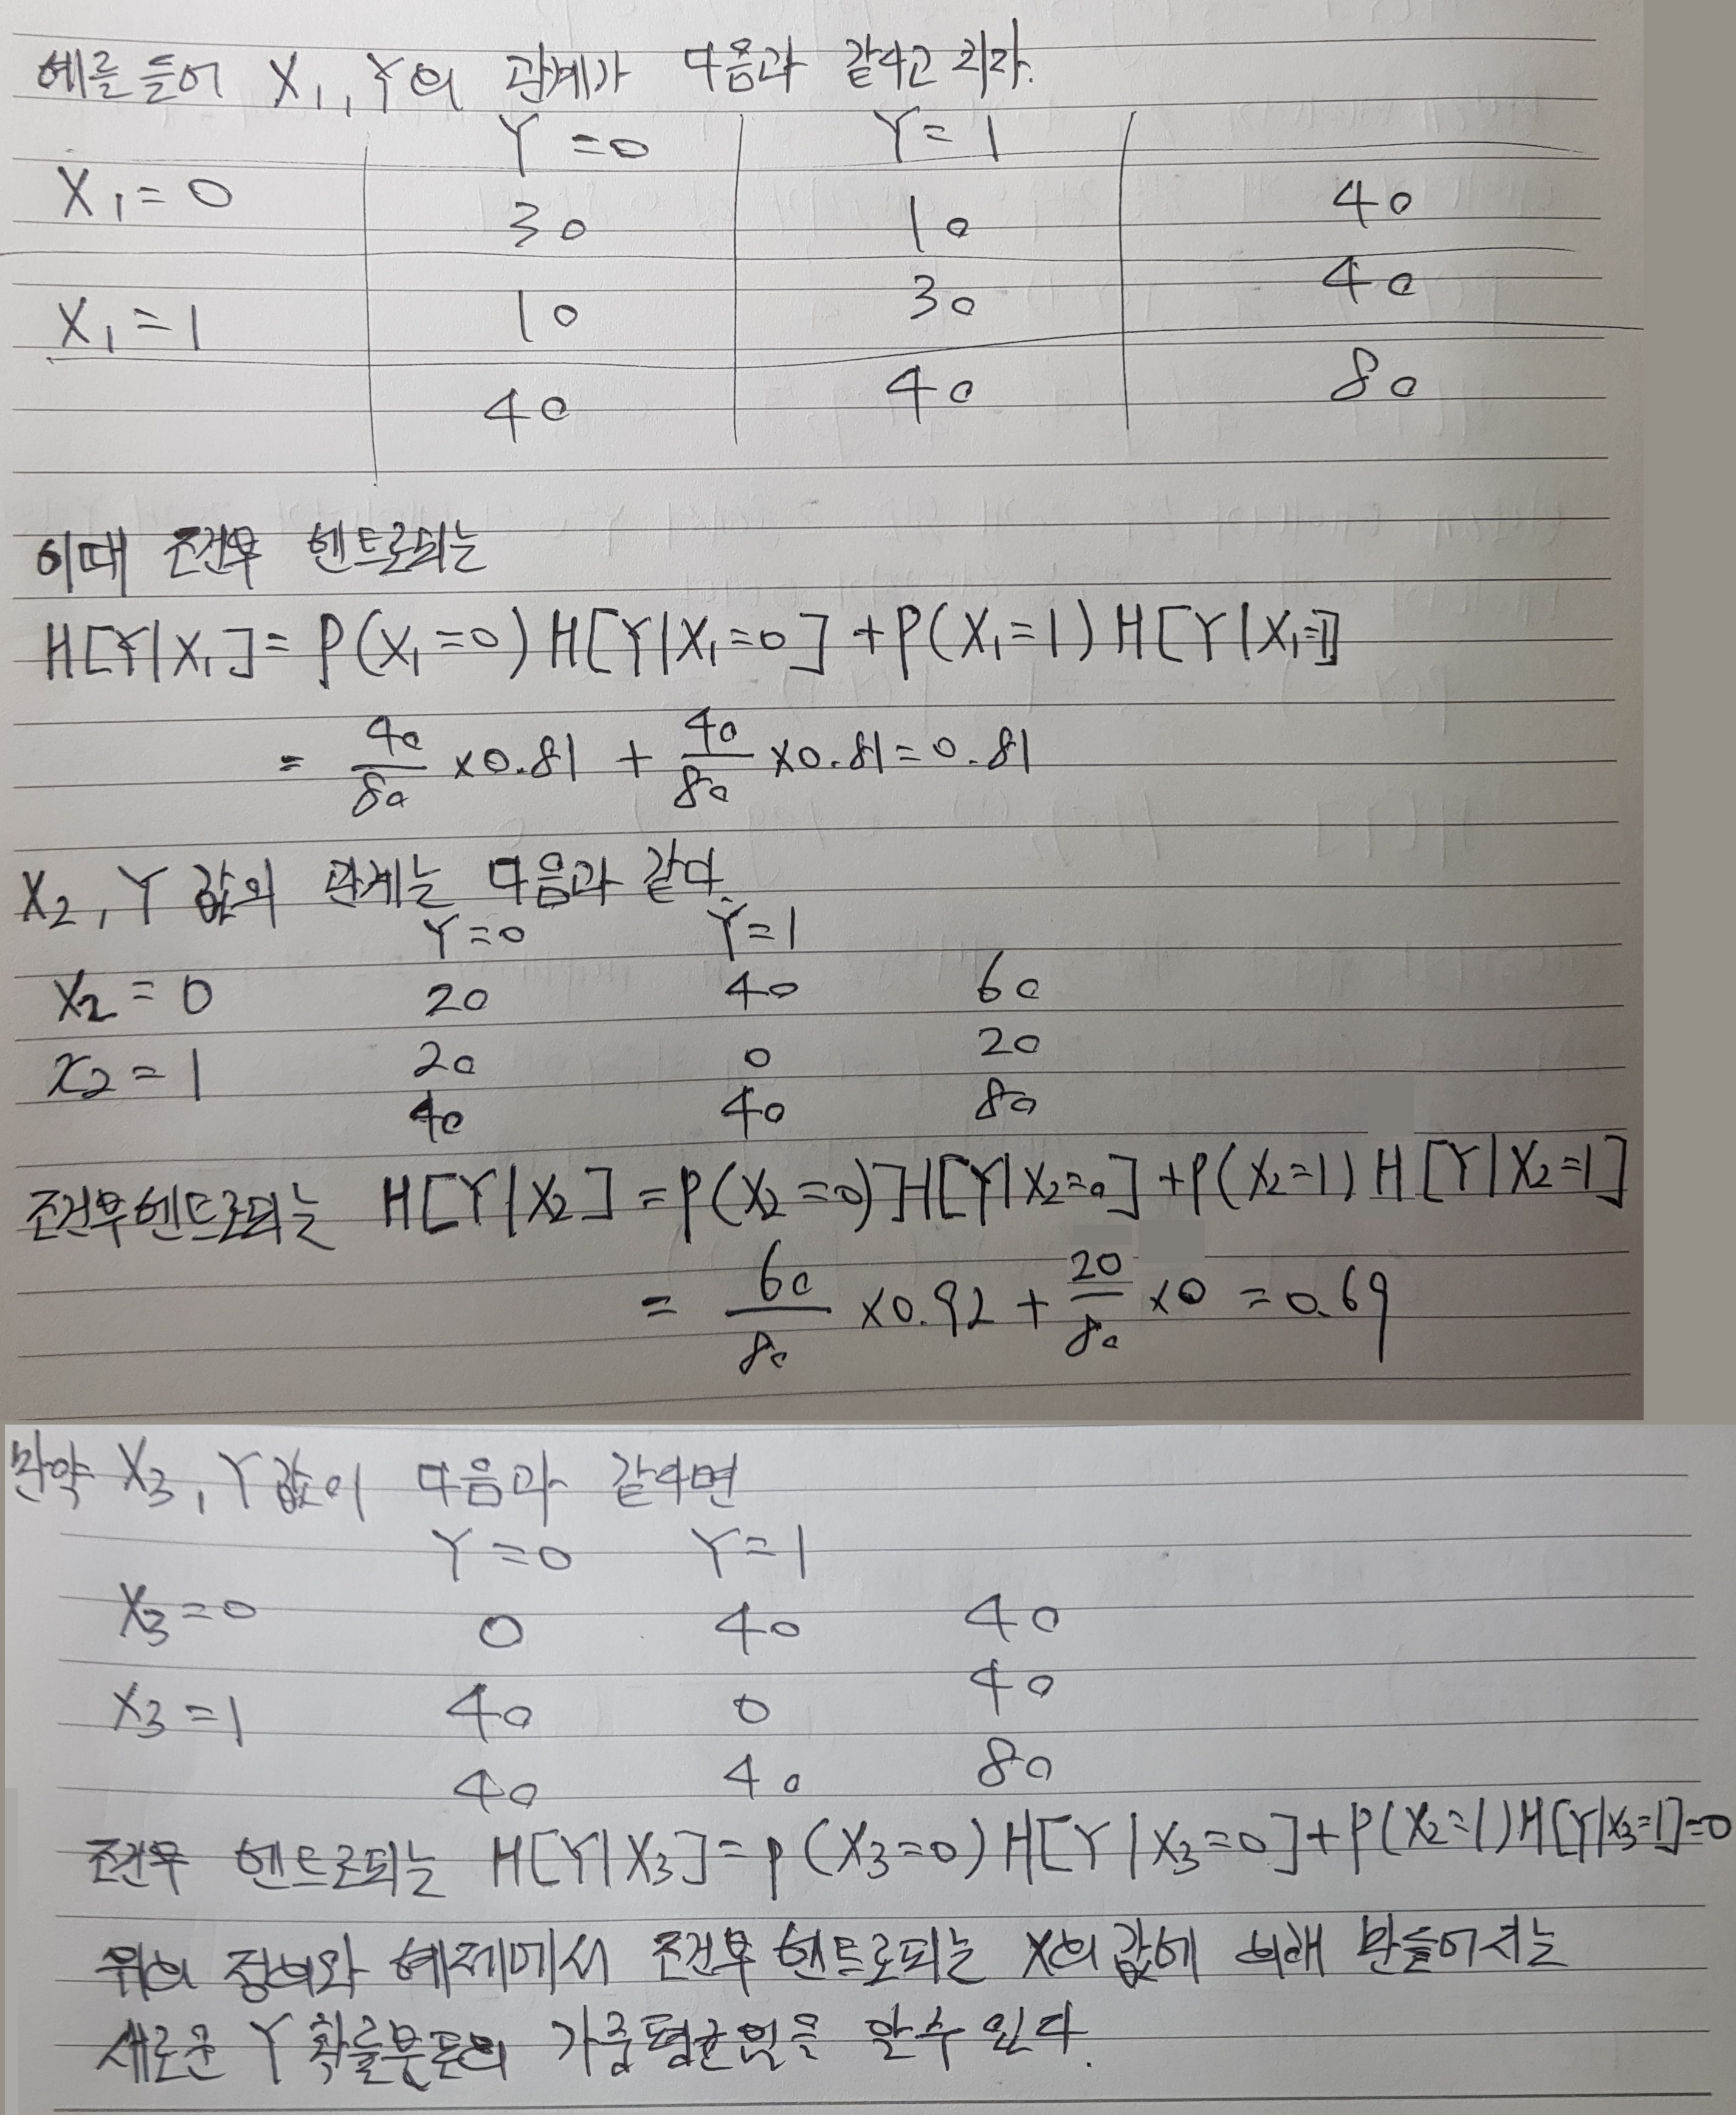 예를 들어 X₁, Y의 관계가 다음과 같다고 하자.
Y=0 Y=1
X₁=0 30 10 40
X₁=1 10 30 40
40 40 80
이때 조건부 엔트로피는
H[Y|X₁]=P(X₁=0)H[Y|X₁=0]+P(X₁=1)H[Y|X₁=1]
= 40/80 ×0.81 + 40/80 ×0.81=0.81
X₂, Y 값의 관계는 다음과 같다.
Y=0 Y=1
X₂=0 20 40 60
X₂=1 20 0 20
40 40 80
조건부 엔트로피는 H[Y|X₂]=P(X₂=0)H[Y|X₂=0]+P(X₂=1)H[Y|X₂=1]
= 60/80 ×0.92+ 20/80 ×0 =0.69
만약 X₃, Y값이 다음과 같다면
Y=0 Y=1
X₃=0 0 40 40
X₃=1 40 0 40
40 40 80
조건부 엔트로피는 H[Y|X₃]=P(X₃=0)H[Y|X₃=0]+P(X₂=1)H[Y|X₃=1]=0
위의 정의와 예제에서 조건부 엔트로피는 X의 값에 의해 만들어지는
새로운 Y 확률분포의 가중평균임을 알수 있다.